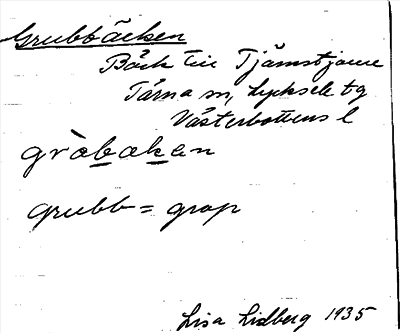 Grubbbäcken
Bäck till Tjämstjaure
Tärna sn, Lycksele tg
Västerbottens l
gròbaken
grubb = grop
Lisa Lidberg 1935